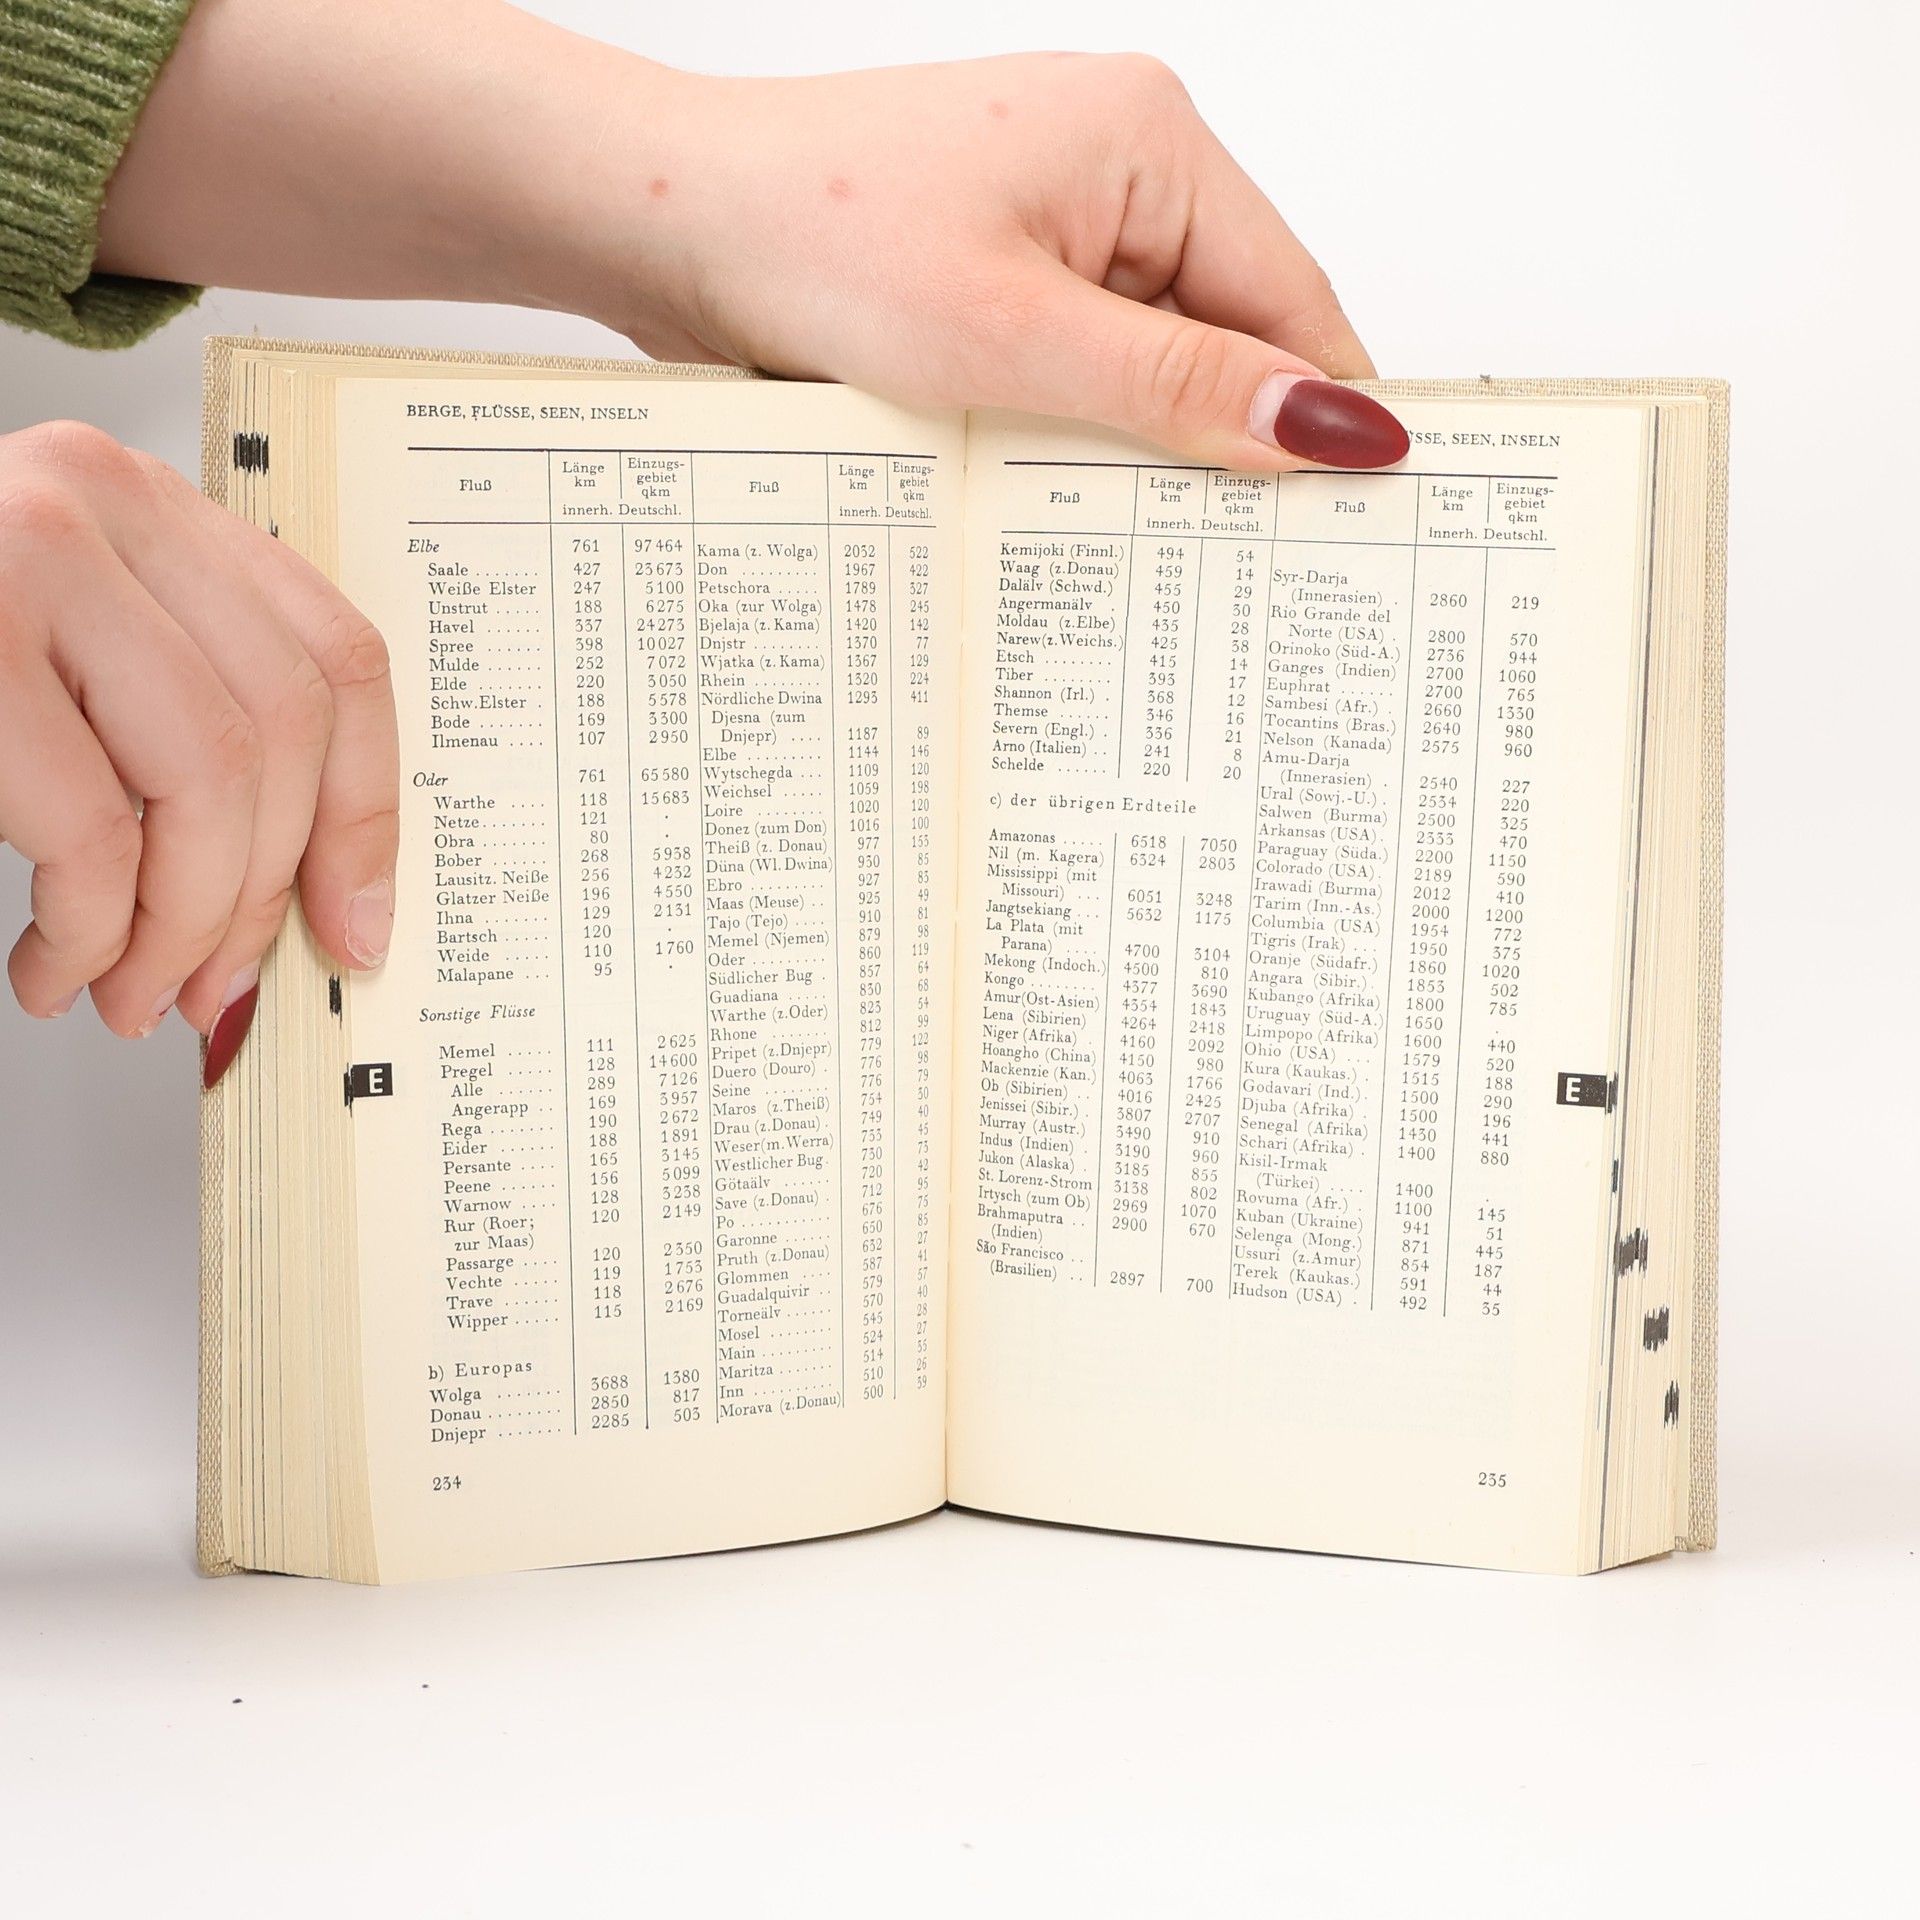 BERGE, FLÜSSE, SEEN, INSELN
Fluß Länge km Einzugs-gebiet qkm
innerh. Deutschl.
Elbe 761 97464
Saale ....... 427 23673
Weiße Elster 247 5100
Unstrut ..... 188 6275
Havel ...... 337 24273
Spree ...... 398 10027
Mulde ...... 252 7072
Elde ....... 220 3050
Schw.Elster . 188 5578
Bode ....... 169 3300
Ilmenau .... 107 2950
Oder 761 65580
Warthe .... 118 15683
Netze....... 121 .
Obra ....... 80 .
Bober ...... 268 5938
Lausitz. Neiße 256 4232
Glatzer Neiße 196 4550
Ihna ....... 129 2131
Bartsch ..... 120 .
Weide ..... 110 1760
Malapane ... 95 .
Sonstige Flüsse
Memel ..... 111 2625
Pregel ..... 128 14600
Alle ...... 289 7126
Angerapp .. 169 3957
Rega ....... 190 2672
Eider ...... 188 1891
Persante .... 165 3145
Peene ...... 156 5099
Warnow .... 128 3238
Rur (Roer;
zur Maas) 120 2149
Passarge .... 120 2350
Vechte ..... 119 1753
Trave ...... 118 2676
Wipper ..... 115 2169
b) Europas
Wolga ....... 3688 1380
Donau ........ 2850 817
Dnjepr ....... 2285 503
Fluß Länge km Einzugs-gebiet qkm
innerh. Deutschl.
Kama (z. Wolga) 2032 522
Don ......... 1967 422
Petschora ..... 1789 327
Oka (zur Wolga) 1478 245
Bjelaja (z. Kama) 1420 142
Dnjstr ........ 1370 77
Wjatka (z. Kama) 1367 129
Rhein ........ 1320 224
Nördliche Dwina 1293 411
Djesna (zum
Dnjepr) .... 1187 89
Elbe ......... 1144 146
Wytschegda ... 1109 120
Weichsel ..... 1059 198
Loire ........ 1020 120
Donez (zum Don) 1016 100
Theiß (z. Donau) 977 153
Düna (Wl. Dwina) 930 85
Ebro ......... 927 83
Maas (Meuse) .. 925 49
Tajo (Tejo) .... 910 81
Memel (Njemen) 879 98
Oder ......... 860 119
Südlicher Bug . 857 64
Guadiana ..... 830 68
Warthe (z.Oder) 823 54
Rhone ....... 812 99
Pripet (z.Dnjepr) 779 122
Duero (Douro) . 776 98
Seine ........ 776 79
Maros (z.Theiß) 754 30
Drau (z.Donau) . 749 40
Weser(m.Werra) 733 45
Westlicher Bug. 730 73
Götaälv ...... 720 42
Save (z.Donau) . 712 95
Po ........... 676 75
Garonne ...... 650 85
Pruth (z.Donau) 632 27
Glommen .... 587 41
Guadalquivir .. 579 57
Torneälv ...... 570 40
Mosel ........ 545 28
Main ......... 524 27
Maritza ....... 514 55
Inn .......... 510 26
Morava (z.Donau) 500 39
234
E
SSE, SEEN, INSELN
Fluß Länge km Einzugs-gebiet qkm
innerh. Deutschl.
Kemijoki (Finnl.) 494 54
Waag (z.Donau) 459 14
Dalälv (Schwd.) 455 29
Angermanälv . 450 30
Moldau (z.Elbe) 435 28
Narew(z.Weichs.) 425 38
Etsch ........ 415 14
Tiber ........ 393 17
Shannon (Irl.) . 368 12
Themse ...... 346 16
Severn (Engl.) . 336 21
Arno (Italien) .. 241 8
Schelde ...... 220 20
c) der übrigen Erdteile
Amazonas ..... 6518 7050
Nil (m. Kagera) 6324 2803
Mississippi (mit
Missouri) ... 6051 3248
Jangtsekiang ... 5632 1175
La Plata (mit
Parana) .... 4700 3104
Mekong (Indoch.) 4500 810
Kongo ........ 4377 3690
Amur(Ost-Asien) 4354 1843
Lena (Sibirien) 4264 2418
Niger (Afrika) . 4160 2092
Hoangho (China) 4150 980
Mackenzie (Kan.) 4063 1766
Ob (Sibirien) .. 4016 2425
Jenissei (Sibir.) . 3807 2707
Murray (Austr.) 3490 910
Indus (Indien) . 3190 960
Jukon (Alaska) . 3185 855
St. Lorenz-Strom 3138 802
Irtysch (zum Ob) 2969 1070
Brahmaputra ..
(Indien) 2900 670
São Francisco ..
(Brasilien) .. 2897 700
Fluß Länge km Einzugs-gebiet qkm
innerh. Deutschl.
Syr-Darja
(Innerasien) . 2860 219
Rio Grande del
Norte (USA) . 2800 570
Orinoko (Süd-A.) 2736 944
Ganges (Indien) 2700 1060
Euphrat ...... 2700 765
Sambesi (Afr.) . 2660 1330
Tocantins (Bras.) 2640 980
Nelson (Kanada) 2575 960
Amu-Darja
(Innerasien) . 2540 227
Ural (Sowj.-U.) . 2534 220
Salwen (Burma) 2500 325
Arkansas (USA) . 2333 470
Paraguay (Süda.) 2200 1150
Colorado (USA) . 2189 590
Irawadi (Burma) 2012 410
Tarim (Inn.-As.) 2000 1200
Columbia (USA) 1954 772
Tigris (Irak) ... 1950 375
Oranje (Südafr.) 1860 1020
Angara (Sibir.) . 1853 502
Kubango (Afrika) 1800 785
Uruguay (Süd-A.) 1650 .
Limpopo (Afrika) 1600 440
Ohio (USA) ... 1579 520
Kura (Kaukas.) . 1515 188
Godavari (Ind.) . 1500 290
Djuba (Afrika) . 1500 196
Senegal (Afrika) 1430 441
Schari (Afrika) . 1400 880
Kisil-Irmak
(Türkei) .... 1400 .
Rovuma (Afr.) . 1100 145
Kuban (Ukraine) 941 51
Selenga (Mong.) 871 445
Ussuri (z.Amur) 854 187
Terek (Kaukas.) 591 44
Hudson (USA) . 492 35
235
E